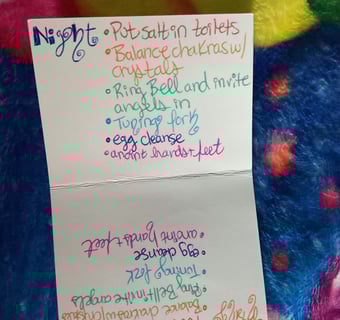 Night
• Put salt in toilets
• Balance chakras w/
crystals
• Ring Bell and invite
angels in
• Tuning fork
• egg cleanse
• anoint hands + feet
• Balance chakras w/crystals
• Ring Bell + invite angels
• Tuning fork
• egg cleanse
• anoint hands + feet